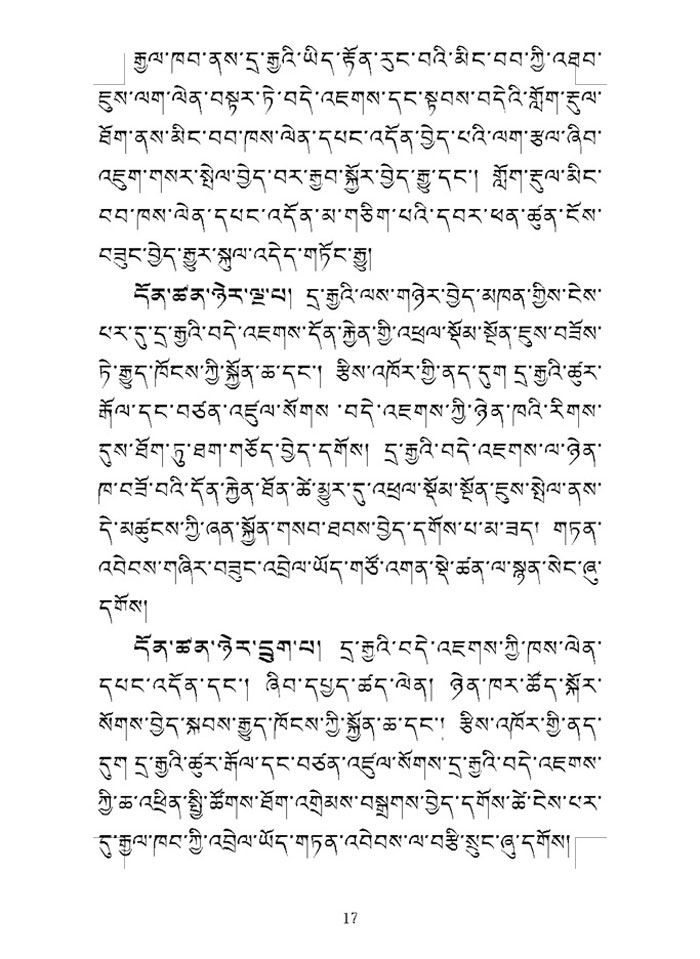 རྒྱལ་ཁབ་ནས་དྲ་རྒྱའི་ཡིད་རྟོན་རུང་བའི་མིང་བབ་ཀྱི་འཐབ་
ཇུས་ལག་ལེན་བསྟར་ཏེ་བདེ་འཇགས་དང་སྟབས་བདེའི་གློག་རྡུལ་
ཐོག་ནས་མིང་བབ་ཁས་ལེན་དཔང་འདོན་བྱེད་པའི་ལག་རྩལ་ཞིབ་
འཇུག་གསར་སྤེལ་བྱེད་བར་རྒྱབ་སྐྱོར་བྱེད་རྒྱུ་དང་། གློག་རྡུལ་མིང་
བབ་ཁས་ལེན་དཔང་འདོན་མ་གཅིག་པའི་དབར་ཕན་ཚུན་ངོས་
བཟུང་བྱེད་རྒྱུར་སྐུལ་འདེད་གཏོང་རྒྱུ།
དོན་ཚན་ཉེར་ལྔ་པ། དྲ་རྒྱའི་ལས་གཉེར་བྱེད་མཁན་གྱིས་ངེས་
པར་དུ་དྲ་རྒྱའི་བདེ་འཇགས་དོན་རྐྱེན་གྱི་འཕྲལ་སྡོམ་སྔོན་ཇུས་བཟོས་
ཏེ་རྒྱུད་ཁོངས་ཀྱི་སྐྱོན་ཆ་དང་། རྩིས་འཁོར་གྱི་ནད་དུག དྲ་རྒྱའི་ཚུར་
རྒོལ་དང་བཙན་འཛུལ་སོགས་བདེ་འཇགས་ཀྱི་ཉེན་ཁའི་རིགས་
དུས་ཐོག་ཏུ་ཐག་གཅོད་བྱེད་དགོས། དྲ་རྒྱའི་བདེ་འཇགས་ལ་ཉེན་
ཁ་བཟོ་བའི་དོན་རྐྱེན་ཐོན་ཚེ་མྱུར་དུ་འཕྲལ་སྡོམ་སྔོན་ཇུས་སྤེལ་ནས་
དེ་མཚུངས་ཀྱི་ཞན་སྐྱོན་གསབ་ཐབས་བྱེད་དགོས་པ་མ་ཟད། གཏན་
འབེབས་གཞིར་བཟུང་འབྲེལ་ཡོད་གཙོ་འགན་སྡེ་ཚན་ལ་སྙན་སེང་ཞུ་
དགོས།
དོན་ཚན་ཉེར་དྲུག་པ། དྲ་རྒྱའི་བདེ་འཇགས་ཀྱི་ཁས་ལེན་
དཔང་འདོན་དང་། ཞིབ་དཔྱད་ཚད་ལེན། ཉེན་ཁར་ཚོད་སྐོར་
སོགས་བྱེད་སྐབས་རྒྱུད་ཁོངས་ཀྱི་སྐྱོན་ཆ་དང་། རྩིས་འཁོར་གྱི་ནད་
དུག དྲ་རྒྱའི་ཚུར་རྒོལ་དང་བཙན་འཛུལ་སོགས་དྲ་རྒྱའི་བདེ་འཇགས་
ཀྱི་ཆ་འཕྲིན་སྤྱི་ཚོགས་ཐོག་འགྲེམས་བསྒྲགས་བྱེད་དགོས་ཚེ་ངེས་པར་
དུ་རྒྱལ་ཁབ་ཀྱི་འབྲེལ་ཡོད་གཏན་འབེབས་ལ་བརྩི་སྲུང་ཞུ་དགོས།
17